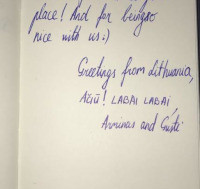 place! And for being so
nice with us :)
Greetings from Lithuania,
AČIŪ! LABAI LABAI,
Arminas and Gustė